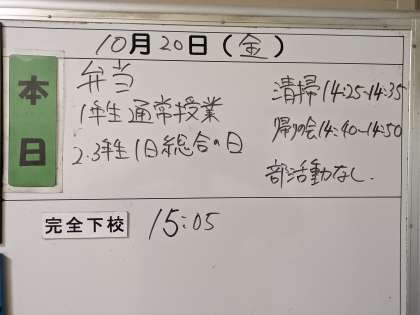 10月20日(金)
本日
弁当
1年生通常授業
2.3年生1日総合の日
清掃14:25~14:35
帰りの会14:40~14:50
部活動なし.
完全下校 15:05